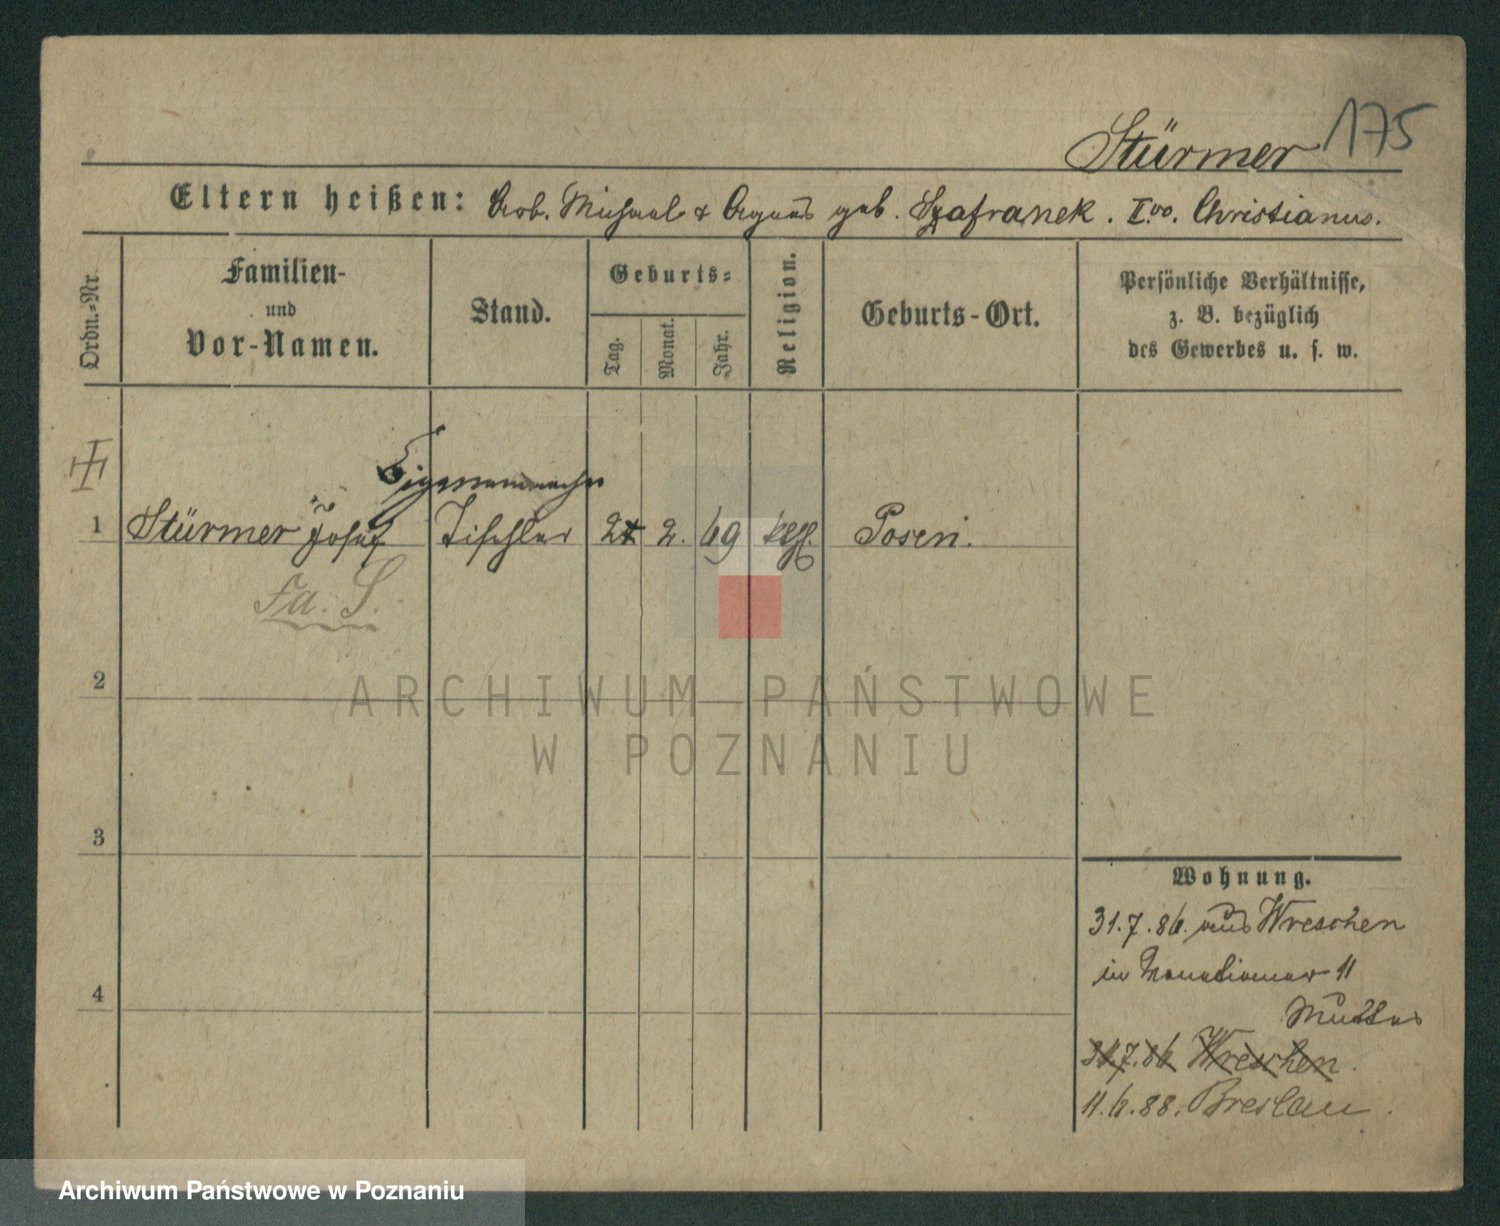 Stürmer 175
Eltern heißen: Arb. Michael & Agnes geb. Szafranek. Christianus.
Ordn.-Nr.
Familien-
und
Vor-Namen.
Stand.
Geburts-
Tag.
Monat.
Jahr.
Religion.
Geburts-Ort.
Persönliche Verhältnisse,
z. B. bezüglich
des Gewerbes u. s. w.
1 Stürmer Josef Tischler 2. 69 kth. Posen.
Fa. S.
2
3
4
Wohnung.
31.7.86. aus Wreschen
in 11
Mutter
31.7.86 Wreschen.
11.6.88. Breslau.
ARCHIWUM PAŃSTWOWE
W POZNANIU
Archiwum Państwowe w Poznaniu